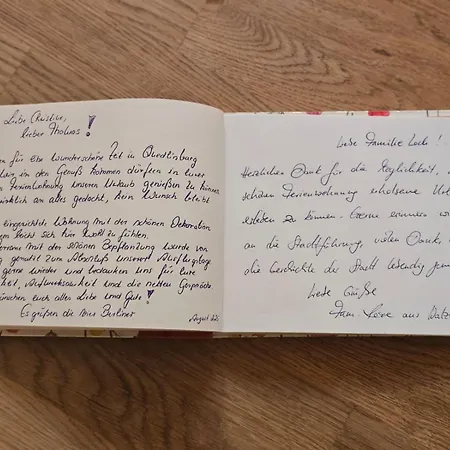 Liebe Christine,
lieber Thomas!
für eine wunderschöne Zeit in Quedlinburg
in den Genuß kommen dürfen in einer
Ferienwohnung unseren Urlaub genießen zu können.
wirklich an alles gedacht, kein Wunsch bleibt
eingerichtete Wohnung mit der schönen Dekoration
leicht sich hier wohl zu fühlen.
mit der schönen Bepflanzung wurde von
genutzt zum Abschluß unserer Ausflugstage
gerne wieder und bedanken uns für eure
Aufmerksamkeit und die netten Gespräche.
wünschen euch alles Liebe und Gute!
Es grüßen die vier Berliner
August
Liebe Familie
Herzlichen Dank für die Möglichkeit,
schönen Ferienwohnung erholsame
erleben zu können. Gerne erinnern wir
an die Stadtführung, vielen Dank,
die Geschichte der Stadt lebendig
Liebe Grüße
Fam. aus